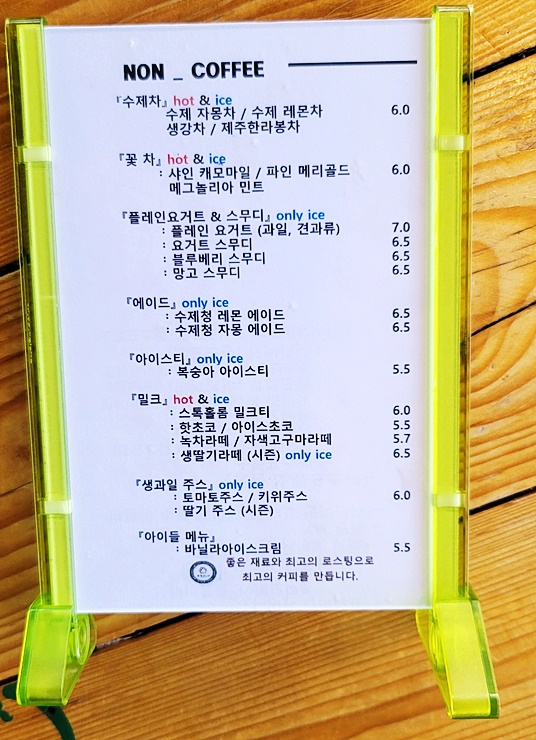 NON _ COFFEE
『수제차』 hot & ice
수제 자몽차 / 수제 레몬차 6.0
생강차 / 제주한라봉차
『꽃 차』 hot & ice
: 샤인 캐모마일 / 파인 메리골드 6.0
메그놀리아 민트
『플레인요거트 & 스무디』 only ice
: 플레인 요거트 (과일, 견과류) 7.0
: 요거트 스무디 6.5
: 블루베리 스무디 6.5
: 망고 스무디 6.5
『에이드』 only ice
: 수제청 레몬 에이드 6.5
: 수제청 자몽 에이드 6.5
『아이스티』 only ice
: 복숭아 아이스티 5.5
『밀크』 hot & ice
: 스톡홀롬 밀크티 6.0
: 핫초코 / 아이스초코 5.5
: 녹차라떼 / 자색고구마라떼 5.7
: 생딸기라떼 (시즌) only ice 6.5
『생과일 주스』 only ice
: 토마토주스 / 키위주스 6.0
: 딸기 주스 (시즌)
『아이들 메뉴』
: 바닐라아이스크림 5.5
좋은 재료와 최고의 로스팅으로
최고의 커피를 만듭니다.